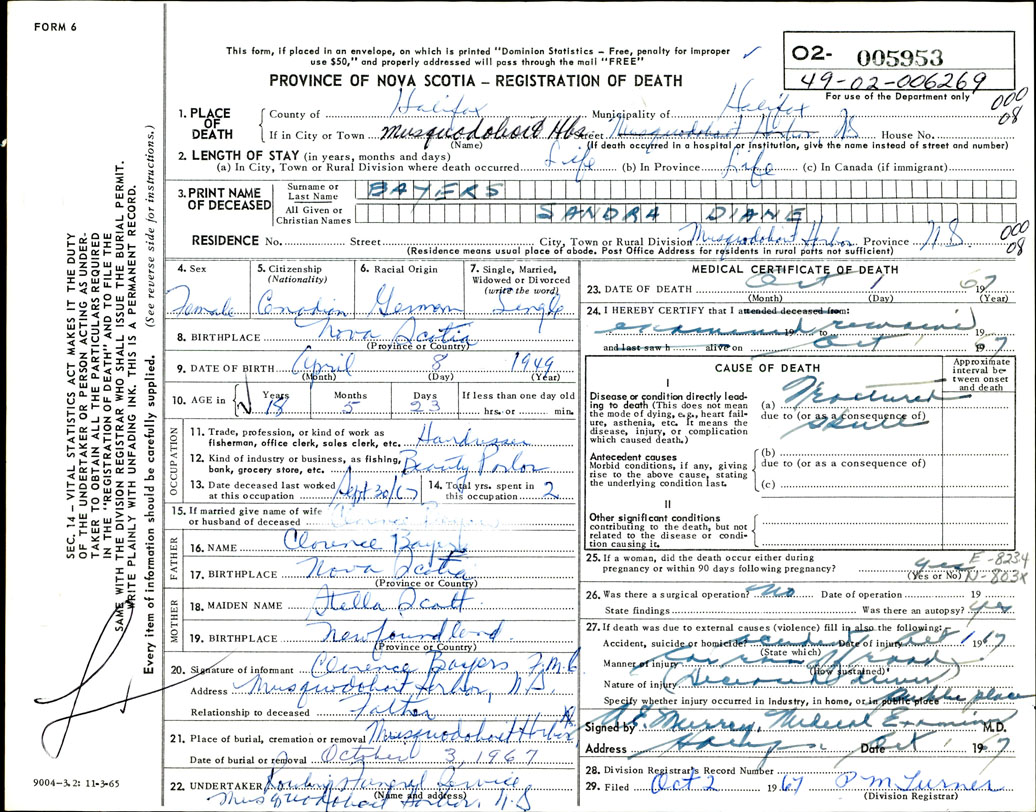 FORM 6
This form, if placed in an envelope, on which is printed "Dominion Statistics – Free, penalty for improper
use $50," and properly addressed will pass through the mail "FREE"
02- 005953
49-02-006269
For use of the Department only
PROVINCE OF NOVA SCOTIA – REGISTRATION OF DEATH
000
08
1. PLACE OF DEATH
County of Halifax Municipality of Halifax
If in City or Town Musquodoboit Hbr Street Musquodoboit Harbor, NS House No.
(Name) (If death occurred in a hospital or institution, give the name instead of street and number)
2. LENGTH OF STAY (in years, months and days)
(a) In City, Town or Rural Division where death occurred Life (b) In Province Life (c) In Canada (if immigrant)
3. PRINT NAME OF DECEASED
Surname or Last Name BAYERS
All Given or Christian Names SANDRA DIANE
RESIDENCE No. Street City, Town or Rural Division Musquodoboit Harbor Province N.S.
(Residence means usual place of abode. Post Office Address for residents in rural parts not sufficient)
000
08
4. Sex
Female
5. Citizenship
(Nationality)
Canadian
6. Racial Origin
German
7. Single, Married,
Widowed or Divorced
(write the word)
Single
8. BIRTHPLACE Nova Scotia
(Province or Country)
9. DATE OF BIRTH April 8 1949
(Month) (Day) (Year)
10. AGE in
Years Months Days If less than one day old
18 5 23 hrs. or min.
OCCUPATION
11. Trade, profession, or kind of work as
fisherman, office clerk, sales clerk, etc. Hairdresser
12. Kind of industry or business, as fishing,
bank, grocery store, etc. Beauty Parlor
13. Date deceased last worked
at this occupation Sept 30/67
14. Total yrs. spent in
this occupation 2
15. If married give name of wife
or husband of deceased
FATHER
16. NAME Clarence Bayers
17. BIRTHPLACE Nova Scotia
(Province or Country)
MOTHER
18. MAIDEN NAME Stella Scott
19. BIRTHPLACE Newfoundland
(Province or Country)
20. Signature of informant Clarence Bayers
Address Musquodoboit Harbor, N.S.
Relationship to deceased Father
21. Place of burial, cremation or removal Musquodoboit Harbor
Date of burial or removal October 3, 1967
22. UNDERTAKER Funeral Service
Musquodoboit Harbor, N.S.
(Name and address)
MEDICAL CERTIFICATE OF DEATH
23. DATE OF DEATH Oct 1 1967
(Month) (Day) (Year)
24. I HEREBY CERTIFY that I attended deceased from:
examined remains
19 to
and last saw h alive on Oct 1 1967
CAUSE OF DEATH
Approximate
interval be-
tween onset
and death
I
Disease or condition directly lead-
ing to death (This does not mean
the mode of dying, e.g., heart fail-
ure, asthenia, etc. It means the
disease, injury, or complication
which caused death.)
(a) Fractured
due to (or as a consequence of)
skull
Antecedent causes
Morbid conditions, if any, giving
rise to the above cause, stating
the underlying condition last.
(b)
due to (or as a consequence of)
(c)
II
Other significant conditions
contributing to the death, but not
related to the disease or condi-
tion causing it.
25. If a woman, did the death occur either during
pregnancy or within 90 days following pregnancy? yes
(Yes or No)
E-8234
N-803X
26. Was there a surgical operation? No Date of operation 19
State findings Was there an autopsy? yes
27. If death was due to external causes (violence) fill in also the following:
Accident, suicide or homicide? accident Date of injury Oct 1 1967
(State which)
Manner of injury Car ran off road
(How sustained)
Nature of injury (Deceased driver)
Specify whether injury occurred in industry, in home, or in public place Public place
Signed by Murray, Medical Examiner M.D.
Address Halifax Date Oct 1 1967
28. Division Registrar's Record Number
29. Filed Oct 2 1967 P M Turner
(Division Registrar)
SEC. 14 – VITAL STATISTICS ACT MAKES IT THE DUTY
OF THE UNDERTAKER OR PERSON ACTING AS UNDER-
TAKER TO OBTAIN ALL THE PARTICULARS REQUIRED
IN THE "REGISTRATION OF DEATH" AND TO FILE THE
SAME WITH THE DIVISION REGISTRAR WHO SHALL ISSUE THE BURIAL PERMIT.
WRITE PLAINLY WITH UNFADING INK. THIS IS A PERMANENT RECORD.
Every item of information should be carefully supplied. (See reverse side for instructions.)
9004-3.2: 11-3-65